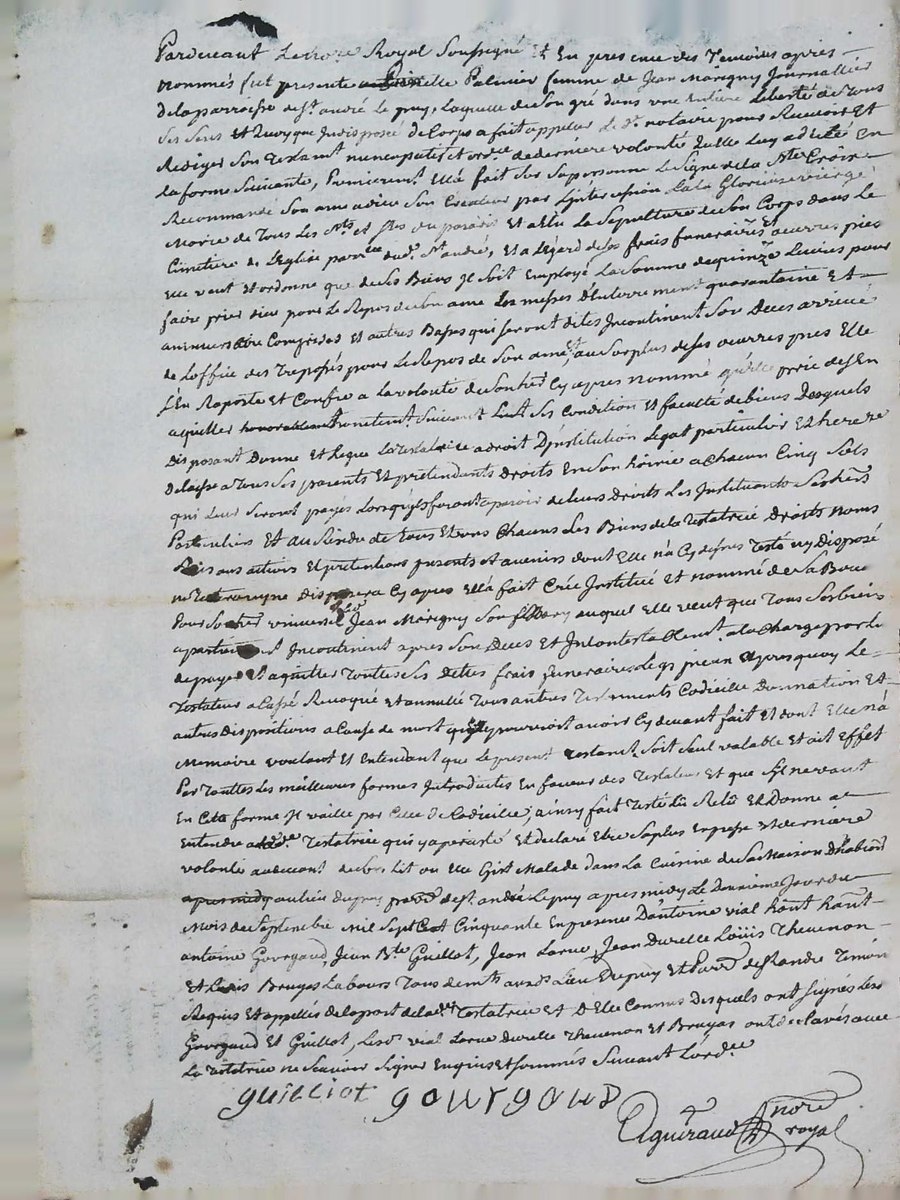 Pardevant Le no.re Royal Soussigné Et En presence des Temoins apres
nommés fut presente Palmier femme de Jean Marigny Journallier
delaparroisse de St. andré le puy, Laquelle de son gré dans une Entiere Liberté de Tous
ses sens Et Quoyque Indisposée de Corps a fait appeller Le d. notaire pour Recevoir Et
Rediger Son Testam.t nuncupatif Et ord.re de derniere volonté qu'elle luy a dicté En
la forme Suivante, Premierem.t Elle a fait Sur Sapersonne Le Signe de la S.te Croix
Recommandé Son ame a dieu Son Createur par L'intercession de la Glorieuse vierge
Marie de Tous Les S.ts et S.tes du paradis Et a Elu La Sepulture de son Corps dans Le
Cimetiere de L'Eglise parr.lle dud. St. andré, Et a L'egard de ses frais funeraires et oeuvres pies
Elle veut Et ordonne que de Ses Biens Il soit Employé La Somme de quinze Livres pour
faire prier dieu pour Le Repos de son ame Les messes d'Enterrement quarantaine Et
anniversaire Comprises Et autres Basses qui seront dites Incontinent Son Deces arrivé
de L'office des Trepassés pour Le Repos de Son ame, Et au Surplus de ses oeuvres pies Elle
S'En Raporte Et Confie a La volonté de Son her.r Cy apres nommé qu'elle prie de s'En
aquitter honnetem.t Suivant Ses Condition Et faculté de biens Desquels
Disposant Donne Et legue La testatrice a droit D'institution Legat particulier Et heredé
Delaisse a Tous Ses parents Et pretendants Droits En Son hoirie a chacun Cinq Sols
qui Leur Seront payés Lorsqu'ils feront aparoir de leurs Droits Les Instituants Ses hers
Particuliers Et au Residu de Tous Et Uns Chacuns Les Biens de la Testatrice Droits noms
Raisons actions Et pretentions presents Et avenirs dont Elle n'a Cy dessus Testé ny Disposé
ny Disposera Cy apres Elle a fait Créé Institué Et nommé de Sa Bouche
pour Son her universel Jean Marigny Son auquel elle veut que Tous Ses biens
apartiennent Incontinent apres Son Deces Et Incontestablem.t a la Charge par luy
de payer Et aquitter Toutes Ses Dettes frais funeraires Legs pieux Apres quoy Le
Testateur a Cassé Revoqué Et annullé Tous autres Testaments Codicille Donnation Et
autres Dispositions a Cause de mort pourroit avoir Cy devant fait Et dont Elle n'a
Memoire voulant Et Entendant que Le present Testam.t Soit Seul valable Et ait Effet
Par Touttes Les meilleures formes Introduites En faveur des Testateurs Et que S'il ne vaut
En Cette forme Il vaille par Celle de Codicille, ainsy fait Testé Lû Relû Et Donné a
Entendre a lad. Testatrice qui y a persisté Et declaré Etre Sa plus Expresse Et derniere
volonté au devant de Son Lit ou Elle Gist Malade dans La Cuisine de Sa Maison D'habi.on
au lieu du puy parr. de St. andré Le puy apres midy Le douzieme Jour du
Mois de Septembre Mil Sept Cent Cinquante En presence D'antoine vial
antoine Gourgaud, Jean B.te Guillot, Jean Larue, Jean Durelle Loüis Thevenon
Et Bruyas Labours Tous dem.ts aud. Lieu Du puy Et parr. de St andré Temoins
Requis Et appellés de la part de lad. Testatrice Et D'Elle Connus Desquels ont Signés Les d.
Gourgaud Et Guillot, Les d. vial Larue Durelle Thevenon Et Bruyas ont declarés avec
La testatrice ne Scavoir Signer Enquis Et Sommés Suivant L'ord.ce
guilliot gourgaud
Aguiraud no.re
royal